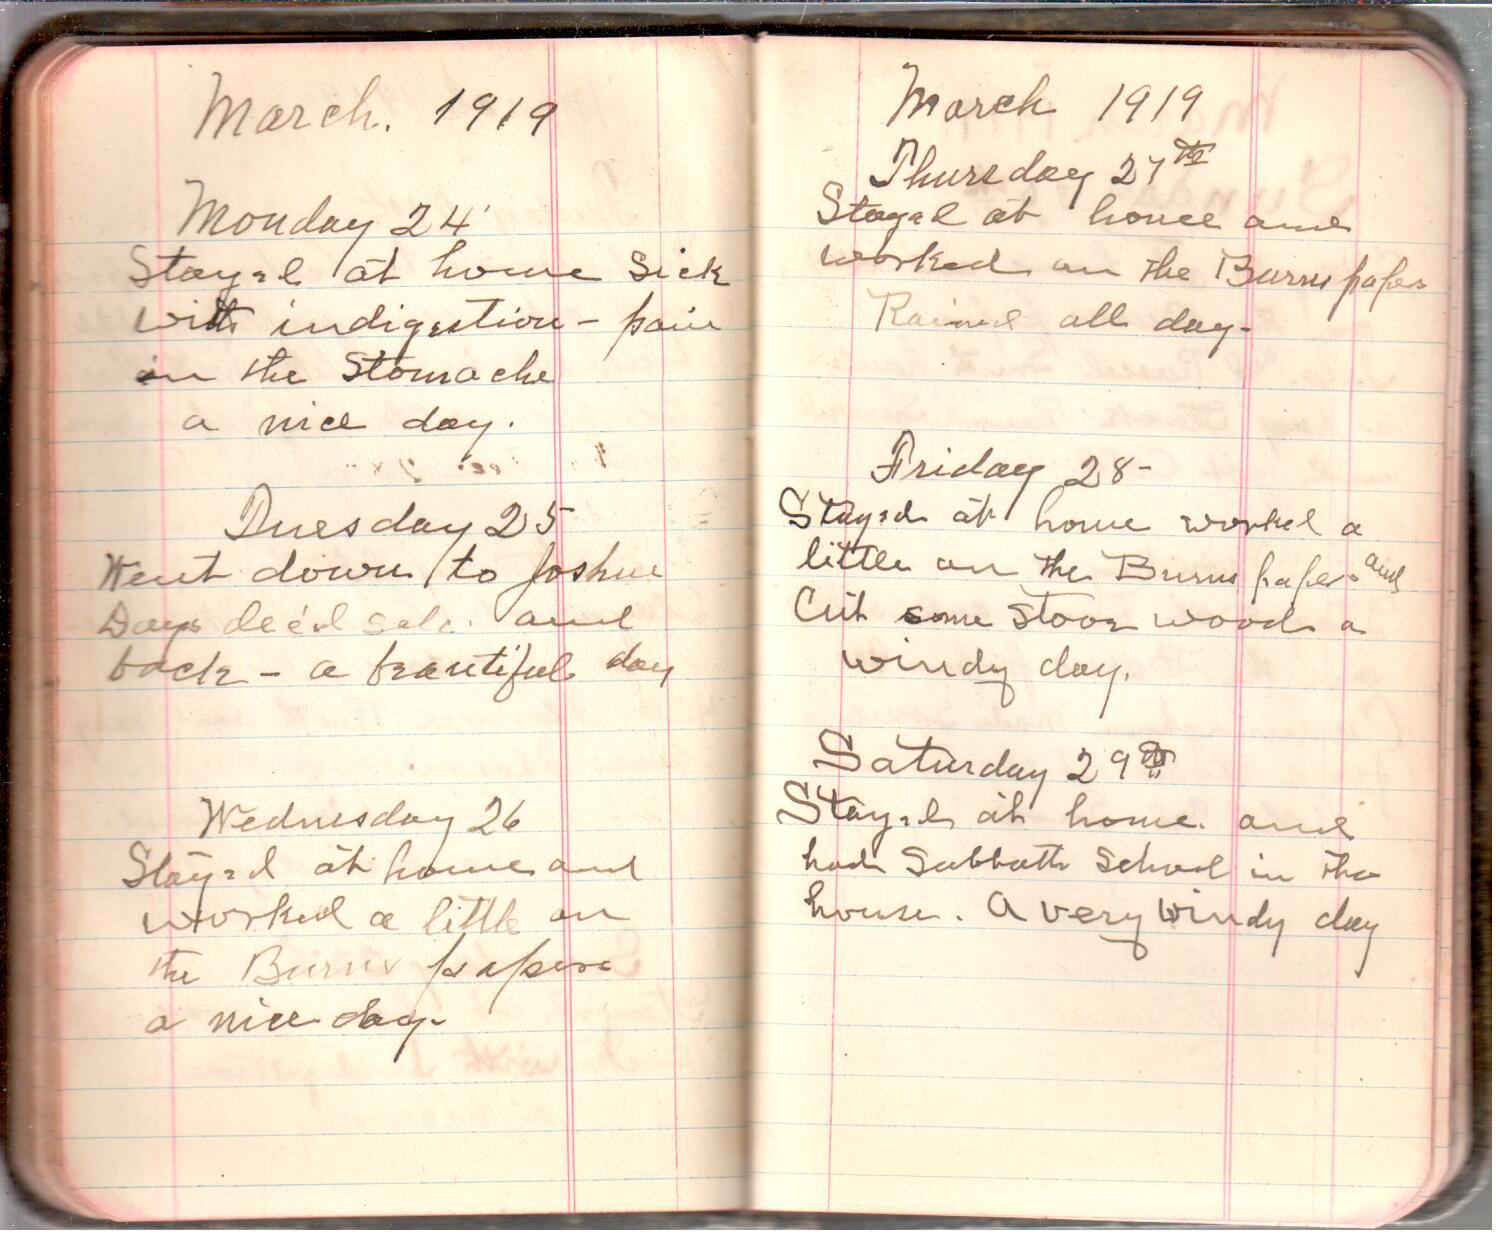 March. 1919
Monday 24
Stayed at home Sick
with indigestion - pain
in the Stomache
a nice day.
Tuesday 25
Went down to Joshua
Days dec'd sale and
back - a beautiful day
Wednesday 26
Stayed at home and
worked a little on
the Burns papers
a nice day.
March 1919
Thursday 27th
Stayed at home and
worked on the Burns papers
Rained all day-
Friday 28-
Stayed at home worked a
little on the Burns papers and
Cut some Stove wood a
windy day.
Saturday 29th
Stayed at home. and
had Sabbath School in the
house. A very windy day